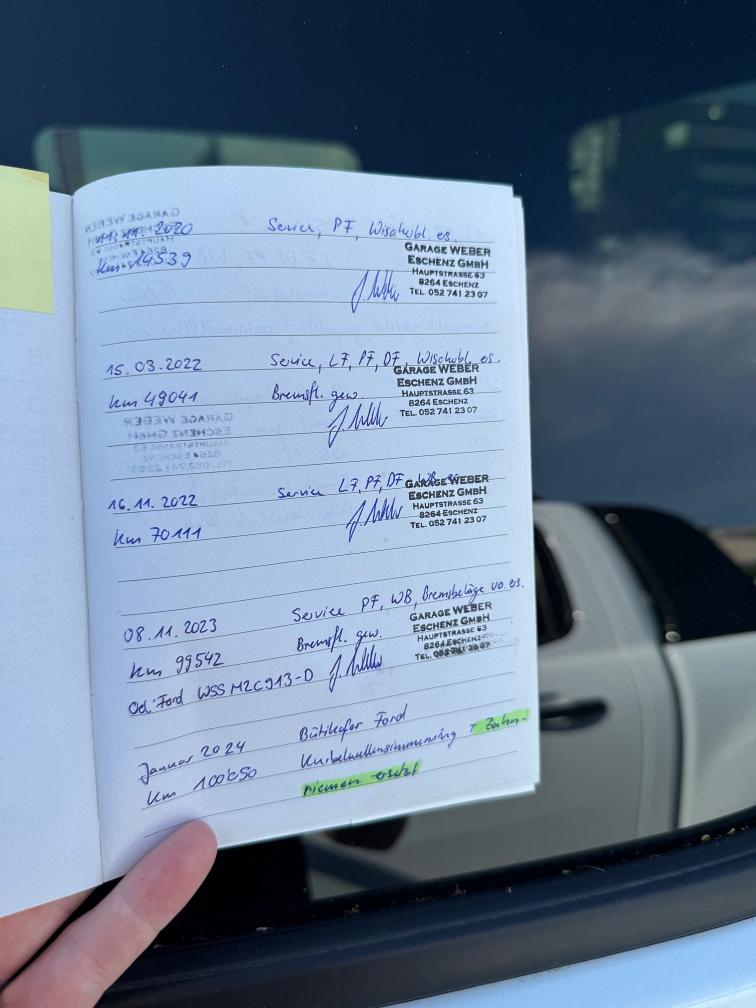 2020 Service, PF, Wischobl. es.
GARAGE WEBER
ESCHENZ GMBH
HAUPTSTRASSE 63
8264 ESCHENZ
TEL. 052 741 23 07
15.03.2022 Service, LF, PF, DF, Wischobl. es.
km 49041 Bremsfl. gew.
GARAGE WEBER
ESCHENZ GMBH
HAUPTSTRASSE 63
8264 ESCHENZ
TEL. 052 741 23 07
16.11.2022 Service LF, PF, DF
km 70111
GARAGE WEBER
ESCHENZ GMBH
HAUPTSTRASSE 63
8264 ESCHENZ
TEL. 052 741 23 07
08.11.2023 Service PF, WB, Bremsbeläge vo. es.
km 99542 Bremsfl. gew.
Oel: Ford WSS M2C913-D
GARAGE WEBER
ESCHENZ GMBH
HAUPTSTRASSE 63
8264 ESCHENZ
TEL. 052 741 23 07
Januar 2024 Bütikofer Ford
km 100'050 Kurbelwellensimmerring + Zahn-
riemen ersetzt